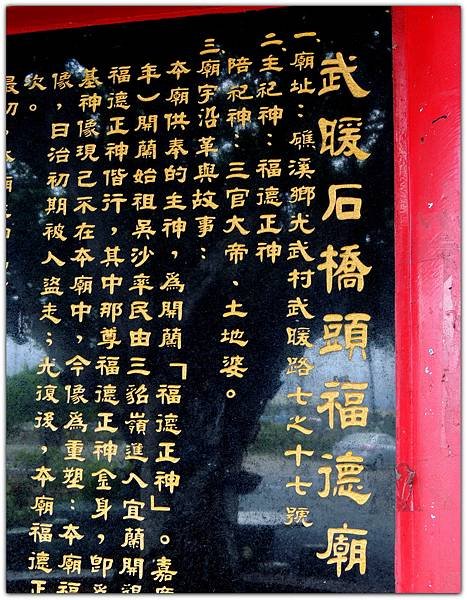 武暖石橋頭福德廟
一廟址：礁溪鄉光武村武暖路七之十七號
二主祀神：福德正神
陪祀神：三官大帝、土地婆。
三廟宇沿革與故事：
本廟供奉的主神，為開蘭「福德正神」。嘉慶
年）開蘭始祖吳沙率民由三貂嶺進入宜蘭開
福德正神偕行，其中那尊福德正神金身，即為
基神像現已不在本廟中，今像為重塑：本廟福
像，日治初期被人盜走；光復後，本廟福德正
次。
最初，本廟